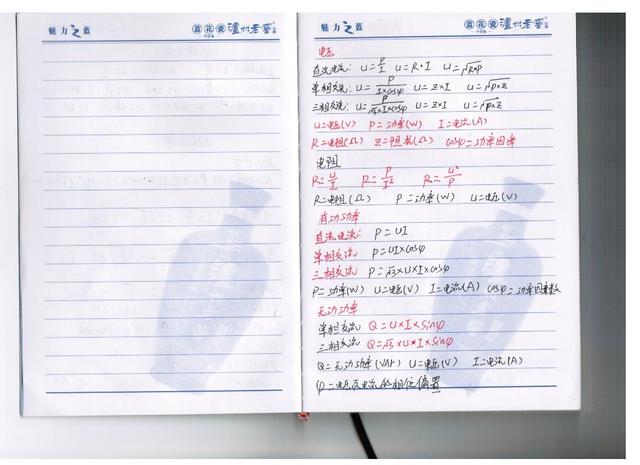 魅力之蓝
蓝花瓷 泸州老窖
魅力之蓝
蓝花瓷 泸州老窖
电压
直流电流: U=P/I U=R·I U=√R×P
单相交流: U=P/I×cosφ U=Z×I U=√P×Z
三相交流: U=P/√3×I×cosφ U=Z×I U=√P×Z
U=电压(V) P=功率(W) I=电流(A)
R=电阻(Ω) Z=阻抗(Ω) cosφ=功率因率
电阻
R=U/I R=P/I² R=U²/P
R=电阻(Ω) P=功率(W) U=电压(V)
有功功率
直流电流: P=UI
单相交流 P=UI×cosφ
三相交流 P=√3×U×I×cosφ
P=功率(W) U=电压(V) I=电流(A) cosφ=功率因素数
无功功率
单相交流 Q=U×I×sinφ
三相交流 Q=√3×U×I×sinφ
Q=无功功率(VAr) U=电压(V) I=电流(A)
φ=电压及电流的相位偏置